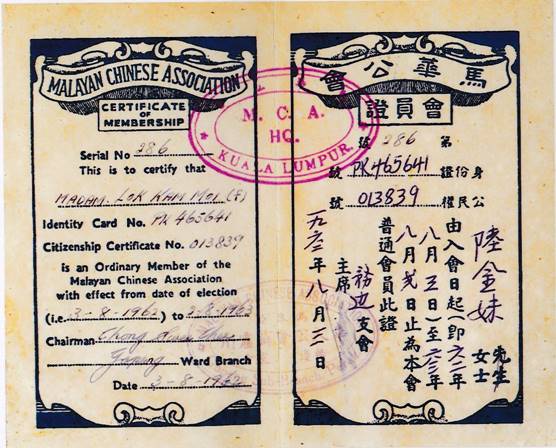 MALAYAN CHINESE ASSOCIATION
CERTIFICATE
OF
MEMBERSHIP
Serial No 286
This is to certify that
MADAM. LOK KAM MOI (F)
Identity Card No. PK 465641
Citizenship Certificate No. 013839
is an Ordinary Member of the
Malayan Chinese Association
with effect from date of election
(i.e. 3-8-1962) to 2-8-1963
Chairman Chong
Gopeng Ward Branch
Date 3-8-1962
M. C. A.
HQ.
KUALA LUMPUR
馬華公會
會員證
第 286 號
身份證 PK465641 號
公民權 013839 號
陸金妹 先生 女士
由入會日起(即六二年
八月三日)至六三年
八月弍日止為本會
普通會員此證
務边支會
主席
一九六二年八月三日